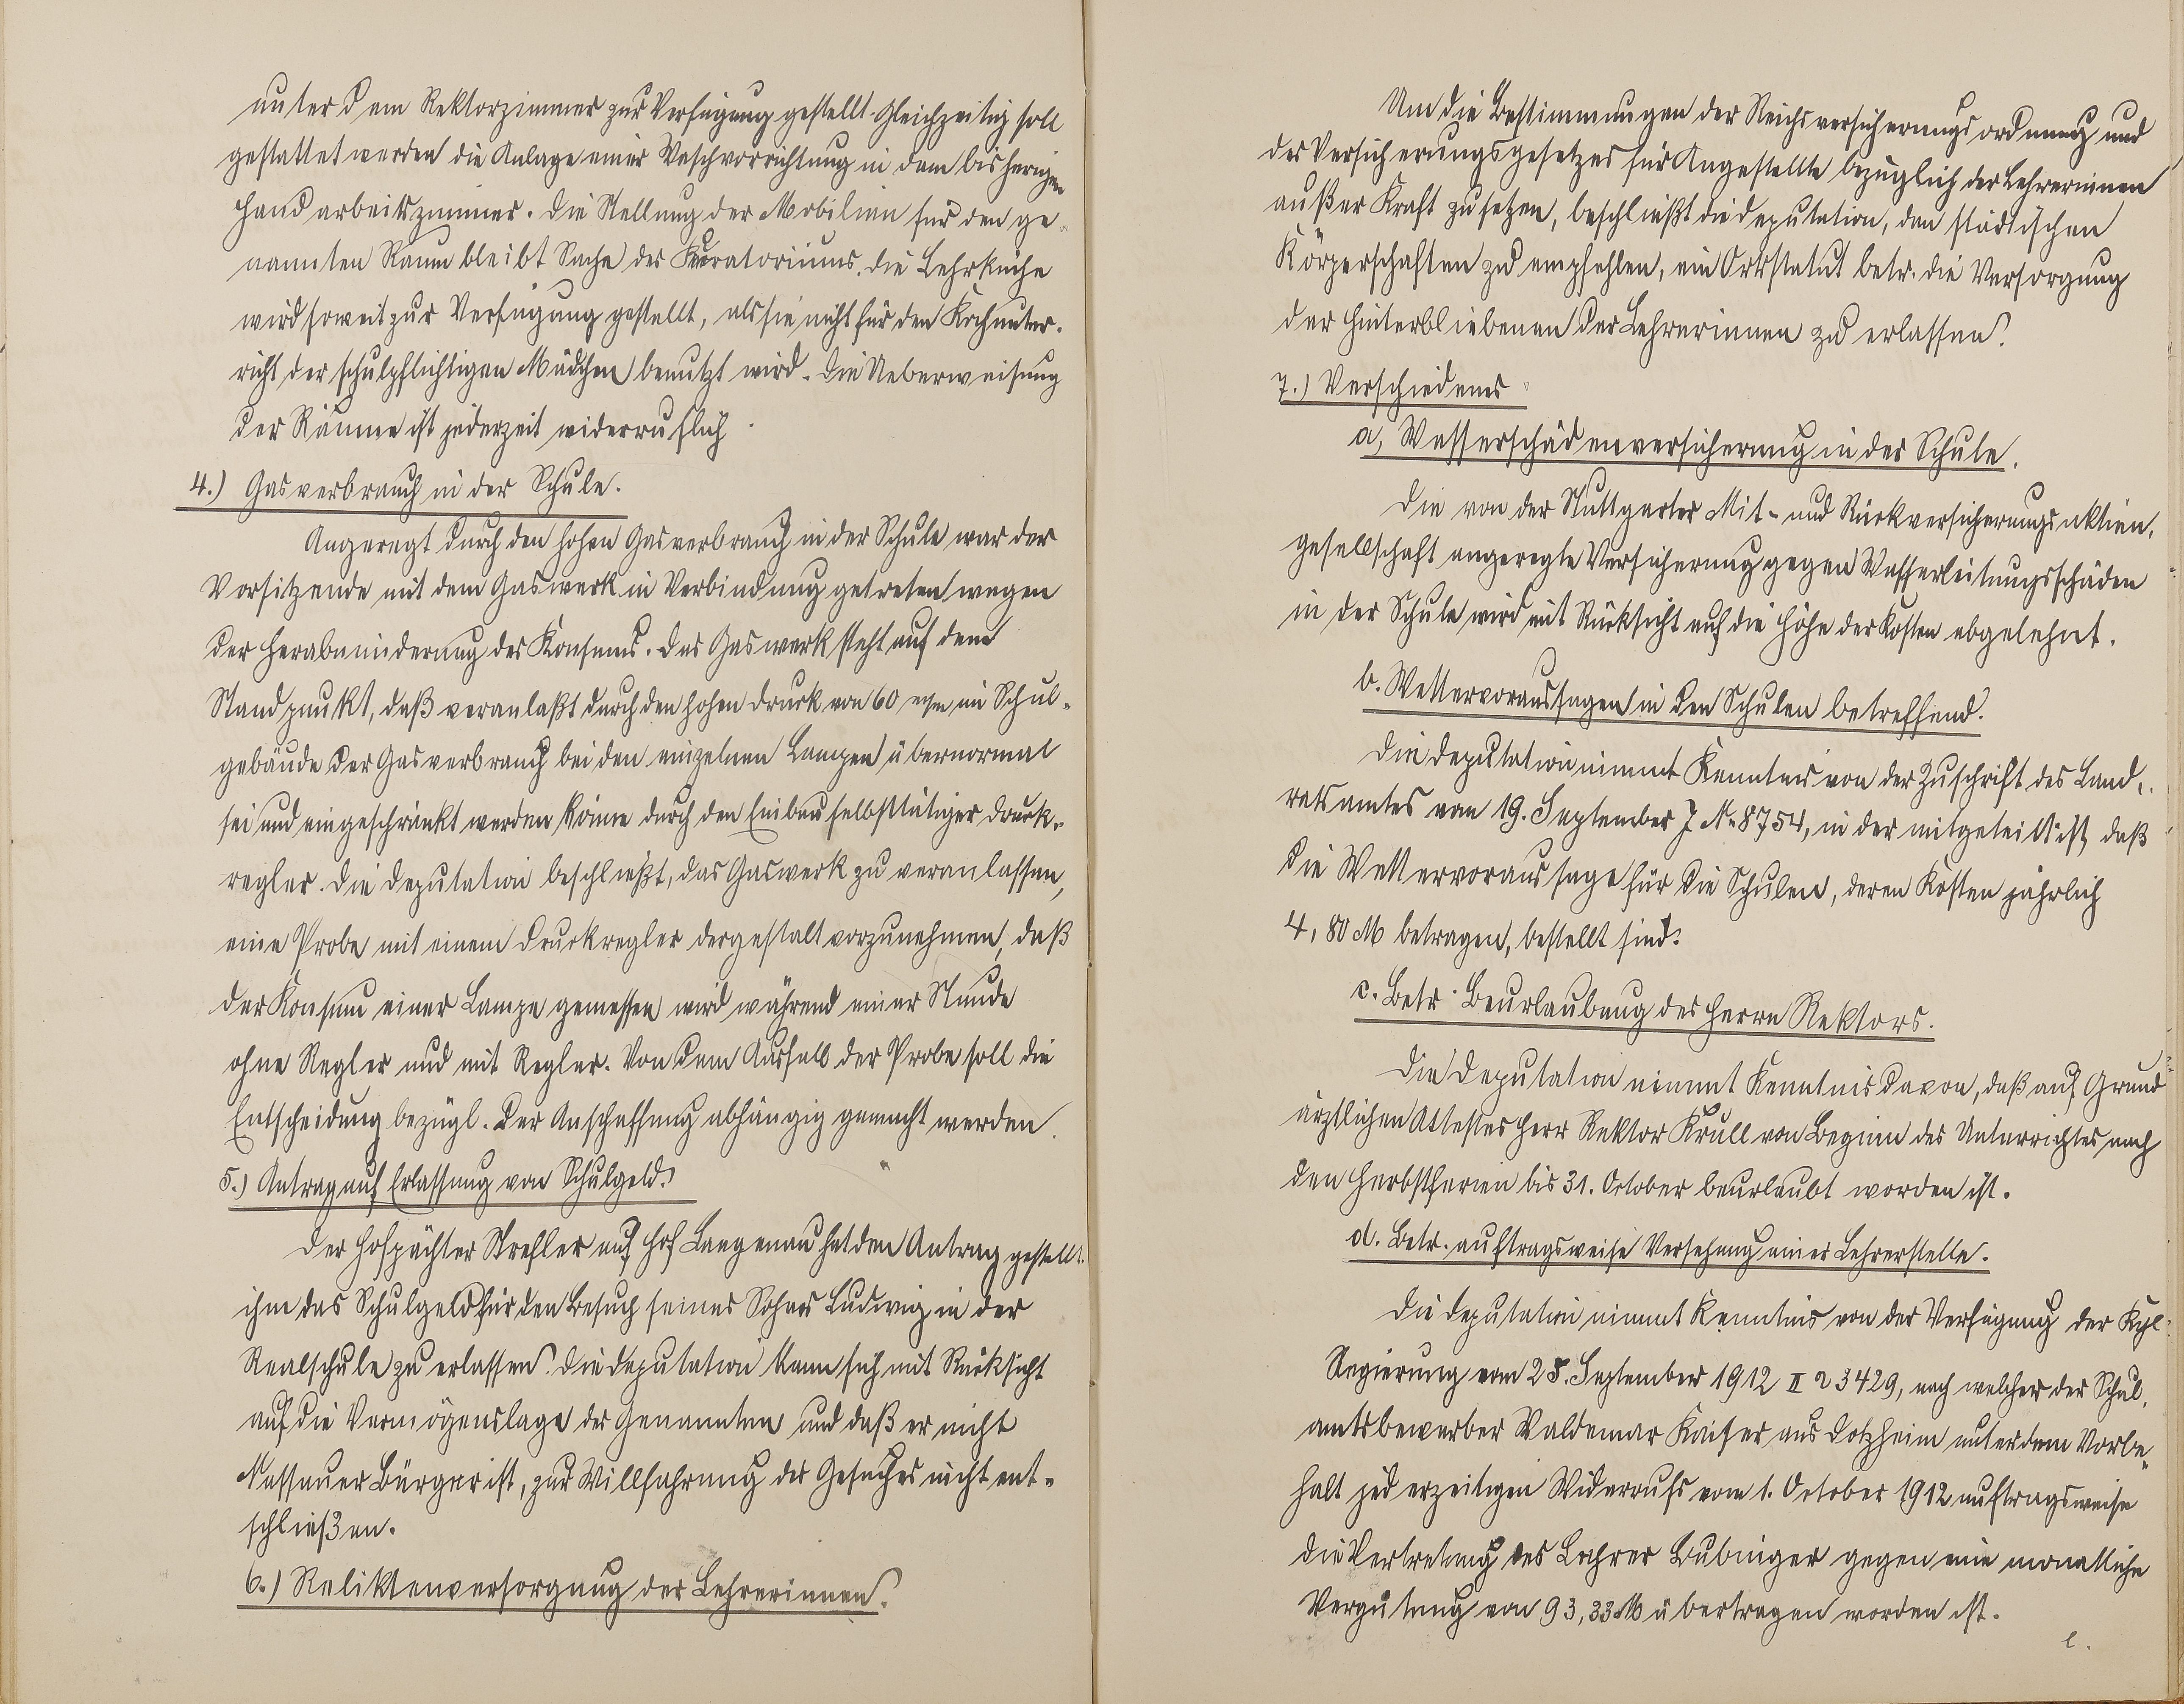 unter dem Rektorzimmer zur Verfügung gestellt. Gleichzeitig soll
gestattet werden die Anlage einer Waschvorrichtung in dem bisherigen
Handarbeitszimmer. Die Stellung der Mobilien für den ge-
nannten Raum bleibt Sache des Kuratoriums. Die Lehrküche
wird soweit zur Verfügung gestellt, als sie nicht für den Kochunter-
richt der schulpflichtigen Mädchen benutzt wird. Die Ueberweisung
der Räume ist jederzeit widerruflich.
4.) Gasverbrauch in der Schule.
Angeregt durch den hohen Gasverbrauch in der Schule war der
Vorsitzende mit dem Gaswerk in Verbindung getreten wegen
der Herabminderung des Konsums. Das Gaswerk steht auf dem
Standpunkt, daß veranlaßt durch den hohen Druck von 60 mm im Schul-
gebäude der Gasverbrauch bei den einzelnen Lampen übernormal
sei und eingeschränkt werden könne durch den Einbau selbsttätiger Druck-
regler. Die Deputation beschließt, das Gaswerk zu veranlassen,
eine Probe mit einem Druckregler dergestalt vorzunehmen, daß
der Konsum einer Lampe gemessen wird während einer Stunde
ohne Regler und mit Regler. Von dem Ausfall der Probe soll die
Entscheidung bezügl. der Anschaffung abhängig gemacht werden.
5.) Antrag auf Erlassung von Schulgeld.
Der Hofpächter Strehler auf Hof Langenau hat den Antrag gestellt
ihm das Schulgeld für den Besuch seines Sohnes Ludwig in der
Realschule zu erlassen. Die Deputation kann sich mit Rücksicht
auf die Vermögenslage des Genannten und daß er nicht
Nassauer Bürger ist, zur Willfahrung des Gesuches nicht ent-
schließen.
6.) Reliktenversorgung der Lehrerinnen.
Um die Bestimmungen der Reichsversicherungsordnung und
des Versicherungsgesetzes für Angestellte bezüglich der Lehrerinnen
außer Kraft zu setzen, beschließt die Deputation, den städtischen
Körperschaften zu empfehlen, ein Ortsstatut betr. die Versorgung
der Hinterbliebenen der Lehrerinnen zu erlassen.
7.) Verschiedenes
a, Wasserschädenversicherung in der Schule.
Die von der Stuttgarter Mit- und Rückversicherungsaktien-
gesellschaft angeregte Versicherung gegen Wasserleitungsschäden
in der Schule wird mit Rücksicht auf die Höhe der Kosten abgelehnt.
b. Wettervoraussagen in den Schulen betreffend.
Die Deputation nimmt Kenntnis von der Zuschrift des Land-
ratsamtes vom 19. September J. No 8754, in der mitgeteilt ist, daß
die Wettervoraussage für die Schulen, deren Kosten jährlich
4,80 M betragen, bestellt sind.
c. Betr. Beurlaubung des Herrn Rektors.
Die Deputation nimmt Kenntnis davon, daß auf Grund
ärztlichen Attestes Herr Rektor Krull von Beginn des Unterrichtes nach
den Herbstferien bis 31. October beurlaubt worden ist.
d. Betr. auftragsweise Versehung einer Lehrerstelle.
Die Deputation nimmt Kenntnis von der Verfügung der Kgl
Regierung vom 25. September 1912 II a 3429, nach welcher der Schul-
amtsbewerber Waldemar Kaiser aus Dotzheim unter dem Vorbe-
halt jederzeitigen Widerrufs vom 1. October 1912 auftragsweise
die Vertretung des Lehrer Bubinger gegen eine monatliche
Vergütung von 93,33 M übertragen worden ist.
e.